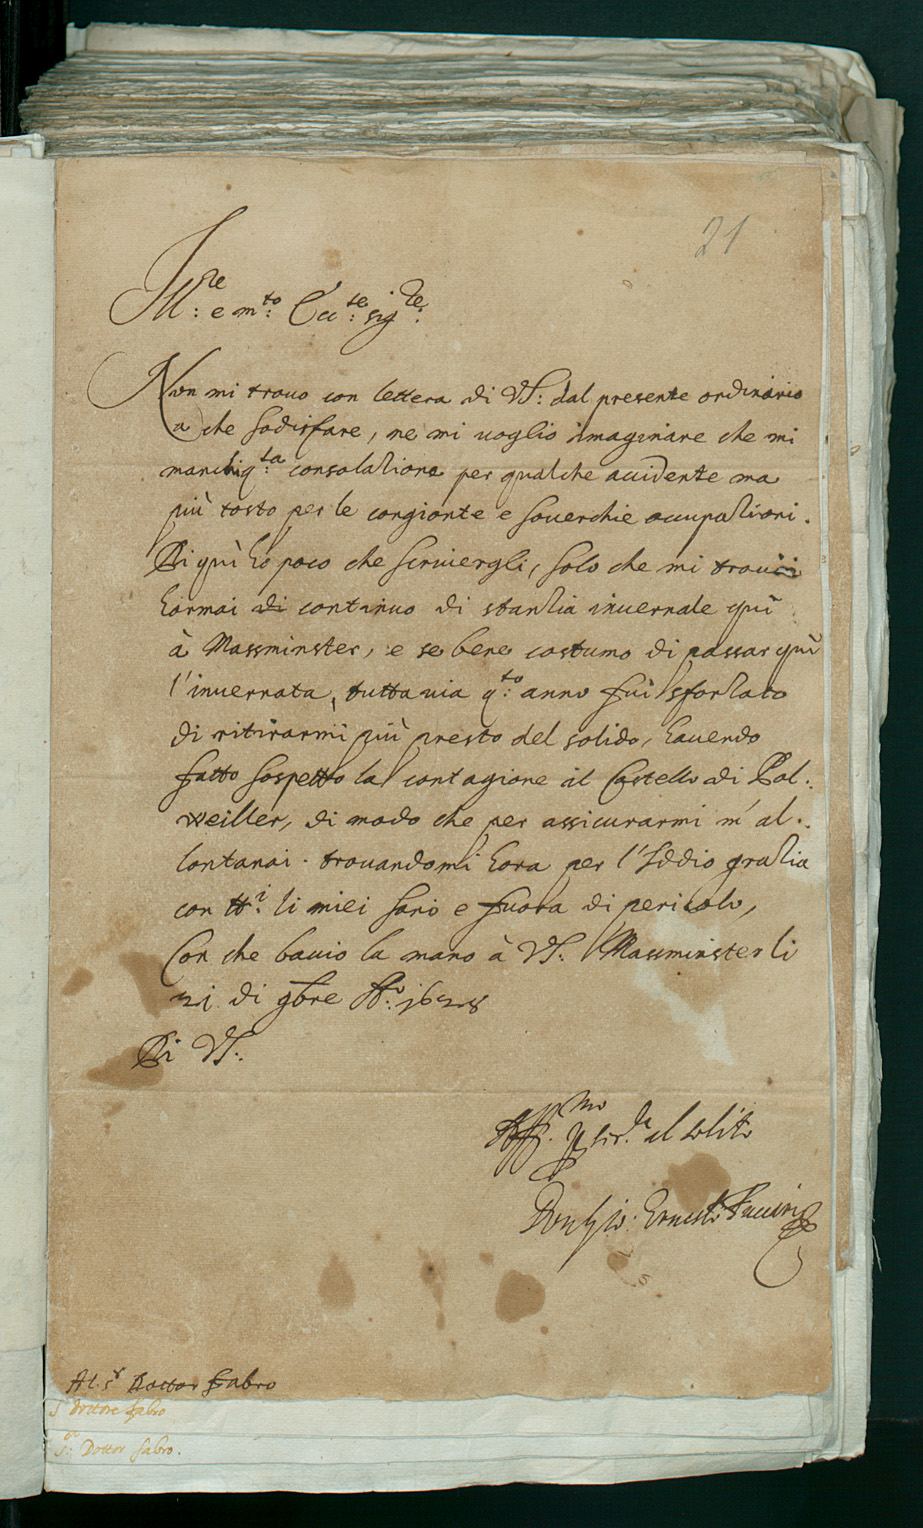 21
Ill:re e m:to Ecc:te sig:re
Non mi trouo con lettera di VS: dal presente ordinario
a che sodisfare, ne mi uoglio imaginare che mi
manchi q:ta consolatione per qualche accidente ma
più tosto per le congionte e souerchie occupationi.
Di quì ho poco che scriuergli, solo che mi trouo
hormai di continuo di stantia inuernale quì
à Massminster, e se bene costumo di passar quì
l'inuernata, tutta uia q:to anno fui sfortzato
di ritirarmi più presto del solido, hauendo
fatto sospetto la contagione al Castello di Bol:
weiller, di modo che per assicurarmi m'al:
lontanai. trouandomi hora per l'Iddio gratia
con tt:i li miei sano e fuora di pericolo,
Con che bacio la mano à VS: Massminster li
21 di 9bre Ao: 1628
Di VS:
Aff:mo p ser.la al solito
Don Gio: Ernesto
Al s.r Dottor Fabro
S Dottore fabro
S:or Dottor fabro.